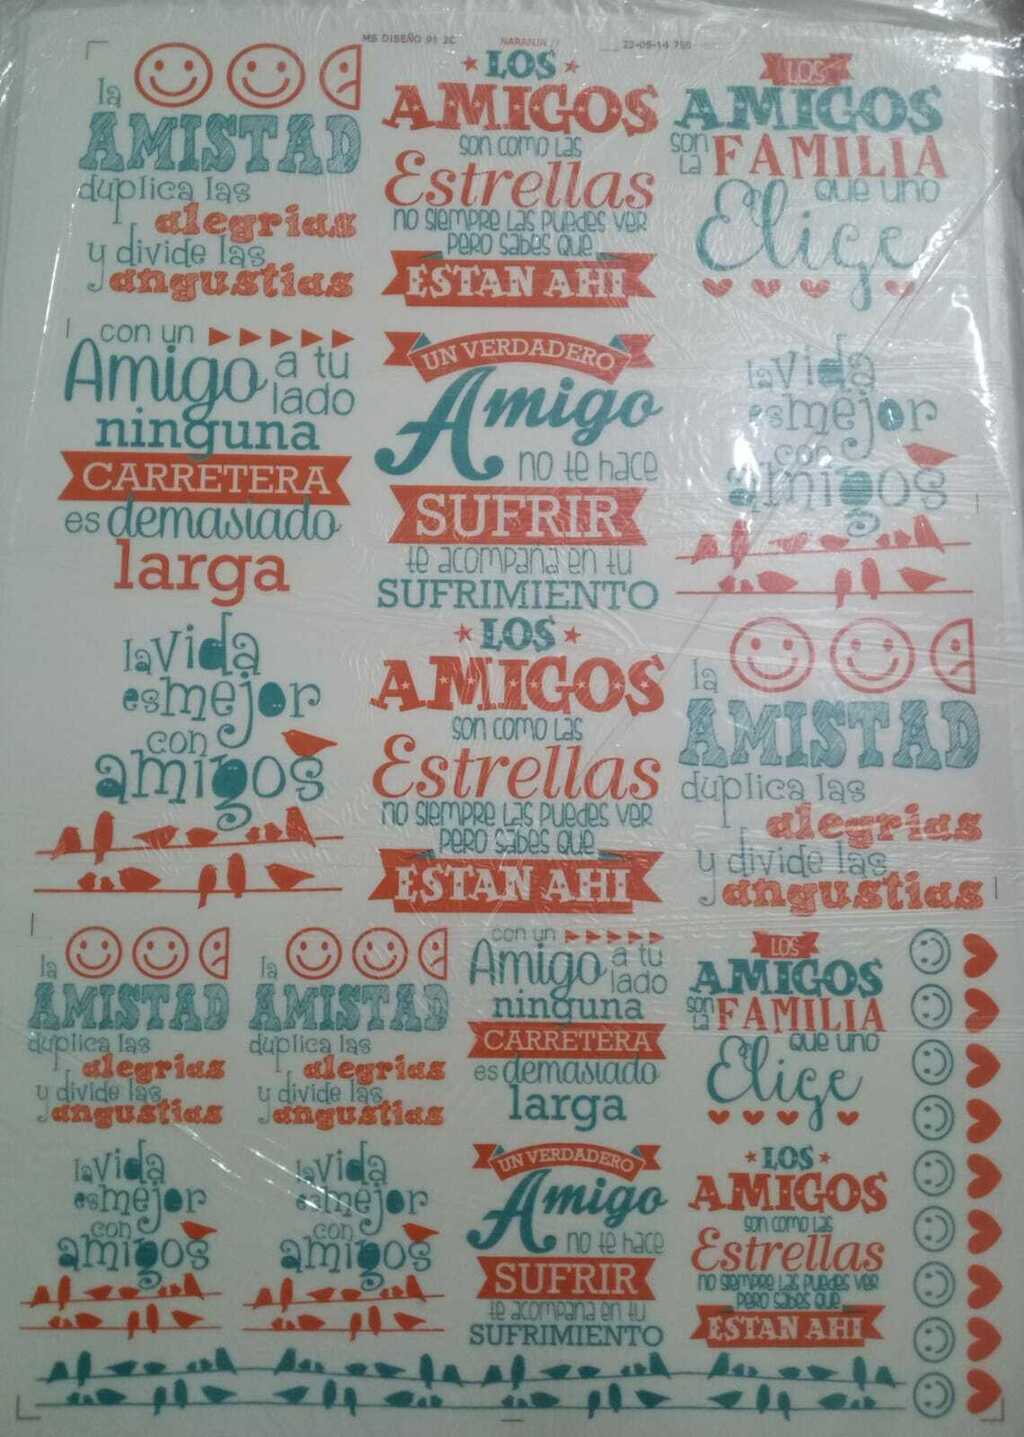 MS DISEÑO 91 2C NARANJA 23-05-14 750
la
AMISTAD
duplica las
alegrias
y divide las
angustias
LOS
AMIGOS
son como las
Estrellas
no siempre las puedes ver
pero sabes que
ESTAN AHI
LOS
AMIGOS
son la FAMILIA
que uno
Elige
con un
Amigo a tu lado
ninguna
CARRETERA
es demasiado
larga
UN VERDADERO
Amigo
no te hace
SUFRIR
te acompaña en tu
SUFRIMIENTO
la vida
es mejor
con
amigos
la vida
es mejor
con
amigos
LOS
AMIGOS
son como las
Estrellas
no siempre las puedes ver
pero sabes que
ESTAN AHI
la
AMISTAD
duplica las
alegrias
y divide las
angustias
la
AMISTAD
duplica las
alegrias
y divide las
angustias
la
AMISTAD
duplica las
alegrias
y divide las
angustias
con un
Amigo a tu lado
ninguna
CARRETERA
es demasiado
larga
LOS
AMIGOS
son la FAMILIA
que uno
Elige
la vida
es mejor
con
amigos
la vida
es mejor
con
amigos
UN VERDADERO
Amigo
no te hace
SUFRIR
te acompaña en tu
SUFRIMIENTO
LOS
AMIGOS
son como las
Estrellas
no siempre las puedes ver
pero sabes que
ESTAN AHI